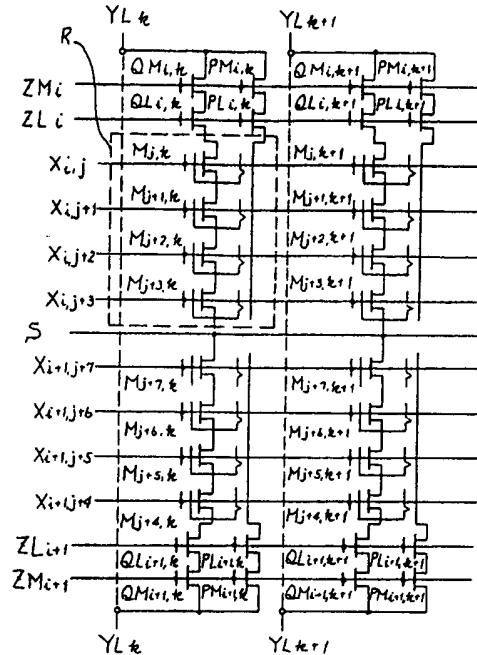 YLk YLk+1
R
QMi,k PMi,k QMi,k+1 PMi,k+1
ZMi
QLi,k PLi,k QLi,k+1 PLi,k+1
ZLi
Mj,k Mj,k+1
Xi,j
Mj+1,k Mj+1,k+1
Xi,j+1
Mj+2,k Mj+2,k+1
Xi,j+2
Mj+3,k Mj+3,k+1
Xi,j+3
S
Xi+1,j+7
Mj+7,k Mj+7,k+1
Xi+1,j+6
Mj+6,k Mj+6,k+1
Xi+1,j+5
Mj+5,k Mj+5,k+1
Xi+1,j+4
Mj+4,k Mj+4,k+1
ZLi+1
QLi+1,k PLi+1,k QLi+1,k+1 PLi+1,k+1
ZMi+1
QMi+1,k PMi+1,k QMi+1,k+1 PMi+1,k+1
YLk YLk+1